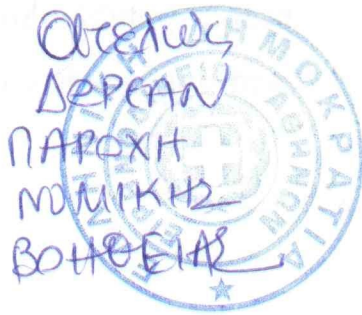 Ατελώς
ΔΩΡΕΑΝ
ΠΑΡΟΧΗ
ΝΟΜΙΚΗΣ
ΒΟΗΘΕΙΑΣ
ΕΛΛΗΝΙΚΗ ΔΗΜΟΚΡΑΤΙΑ